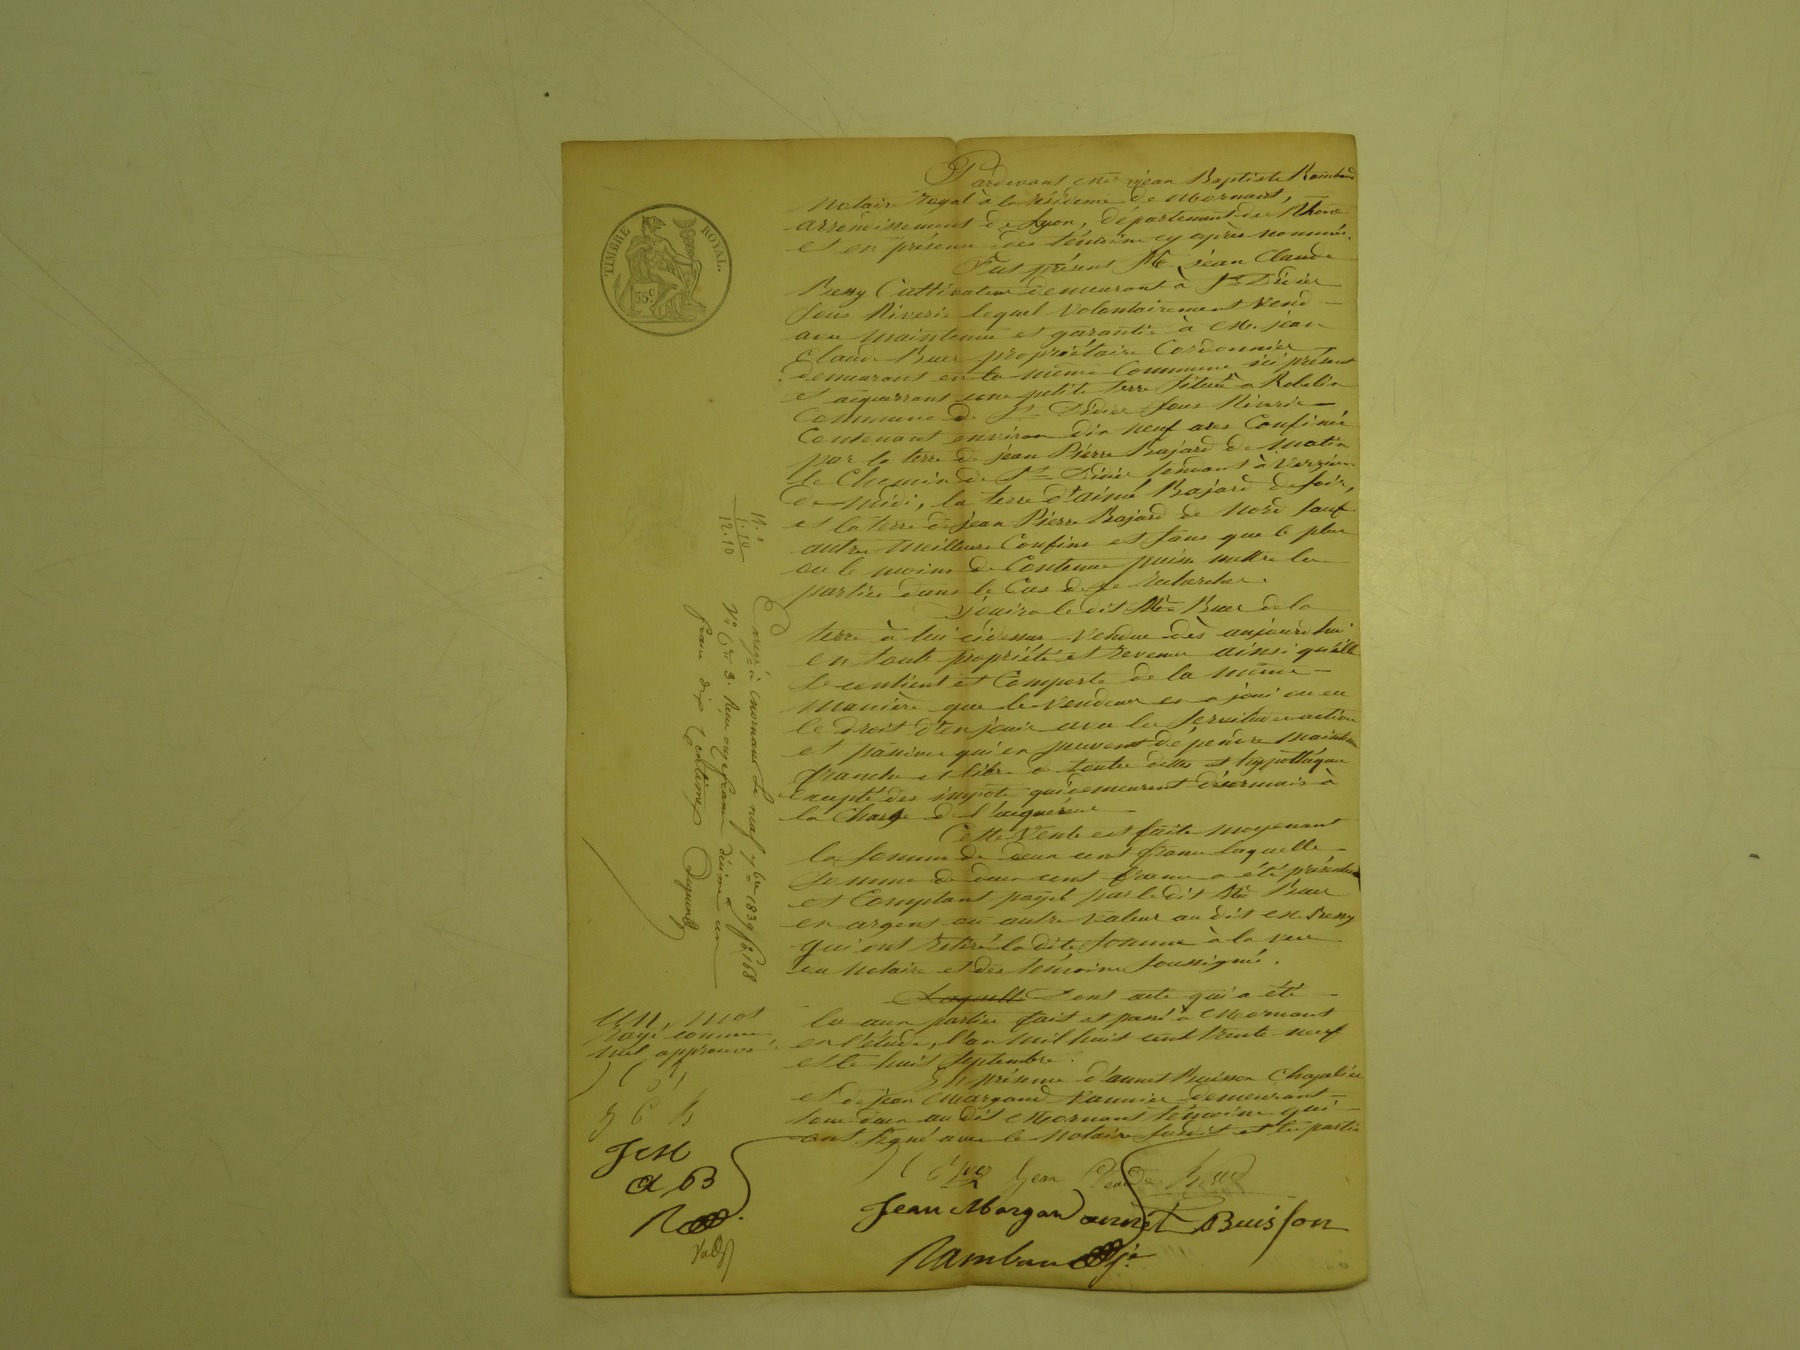 Pardevant Me jean Baptiste Rambaud
Notaire Royal à la résidence de Mornant,
arrondissement de Lyon, département du Rhône
et en présence des témoins cy après nommés.
Fut présent Me jean Claude
Cultivateur demeurant à St Didier
sous Riverie lequel volontairement vend
avec maintenue et garantie à M. jean
Claude propriétaire Cordonnier
demeurant en la même Commune ici présent
et acquerrant une petite terre située a
Commune de St Didier sous Riverie
Contenant environ dix neuf ares Confinée
par la terre de jean Pierre Bajard de matin
le Chemin de St Didier tendant à
de midi, la terre d'aimé Bajard de soir,
et la terre de jean Pierre Bajard de Nord sauf
autres meilleurs Confins et sans que le plus
ou le moins de Contenue puisse mettre les
parties dans le Cas de se rechercher.
jouira le dit Me de la
terre à lui cidessus vendue dès aujourd'hui
en toute propriété et revenu ainsi qu'elle
se contient et Comporte de la même
manière que le vendeur en a joui ou eu
le droit d'en jouir avec les servitudes actives
et passives qui en peuvent dépendre maintenue
franche et libre de toutes dettes et hyppothèques
Excepté des impôts qui demeurent désormais à
la Charge de l'acquéreur
Cette Vente est faite moyenant
la somme de deux cent francs laquelle
somme de deux cent francs a été présentement
et Comptant payée par le dit Me
en argent ou autre valeur au dit M.
qui ont retiré la dite somme à la vue
du Notaire et des témoins soussignés.
Laquelle Dont acte qui a été
lu aux parties fait et passé à Mornant
en l'étude, l'an mil huit cent trente neuf
et le huit Septembre.
En présence d'annet Buisson Chapelier
et de jean Margand Vannier demeurant
tous deux au dit Mornant témoins qui
ont signé avec le Notaire susdit et les parties
Jean Claude
Jean Morgan annet Buisson
Rambaud
TIMBRE ROYAL.
35 C
11."
1.10
12.10
Enregé à Mornant le neuf 7bre 1839 fo 168
Vo Ces 3. Reçu onze francs décime un
franc dix Centimes
un mot
rayé comme
nul approuvé.
J M
a B
R